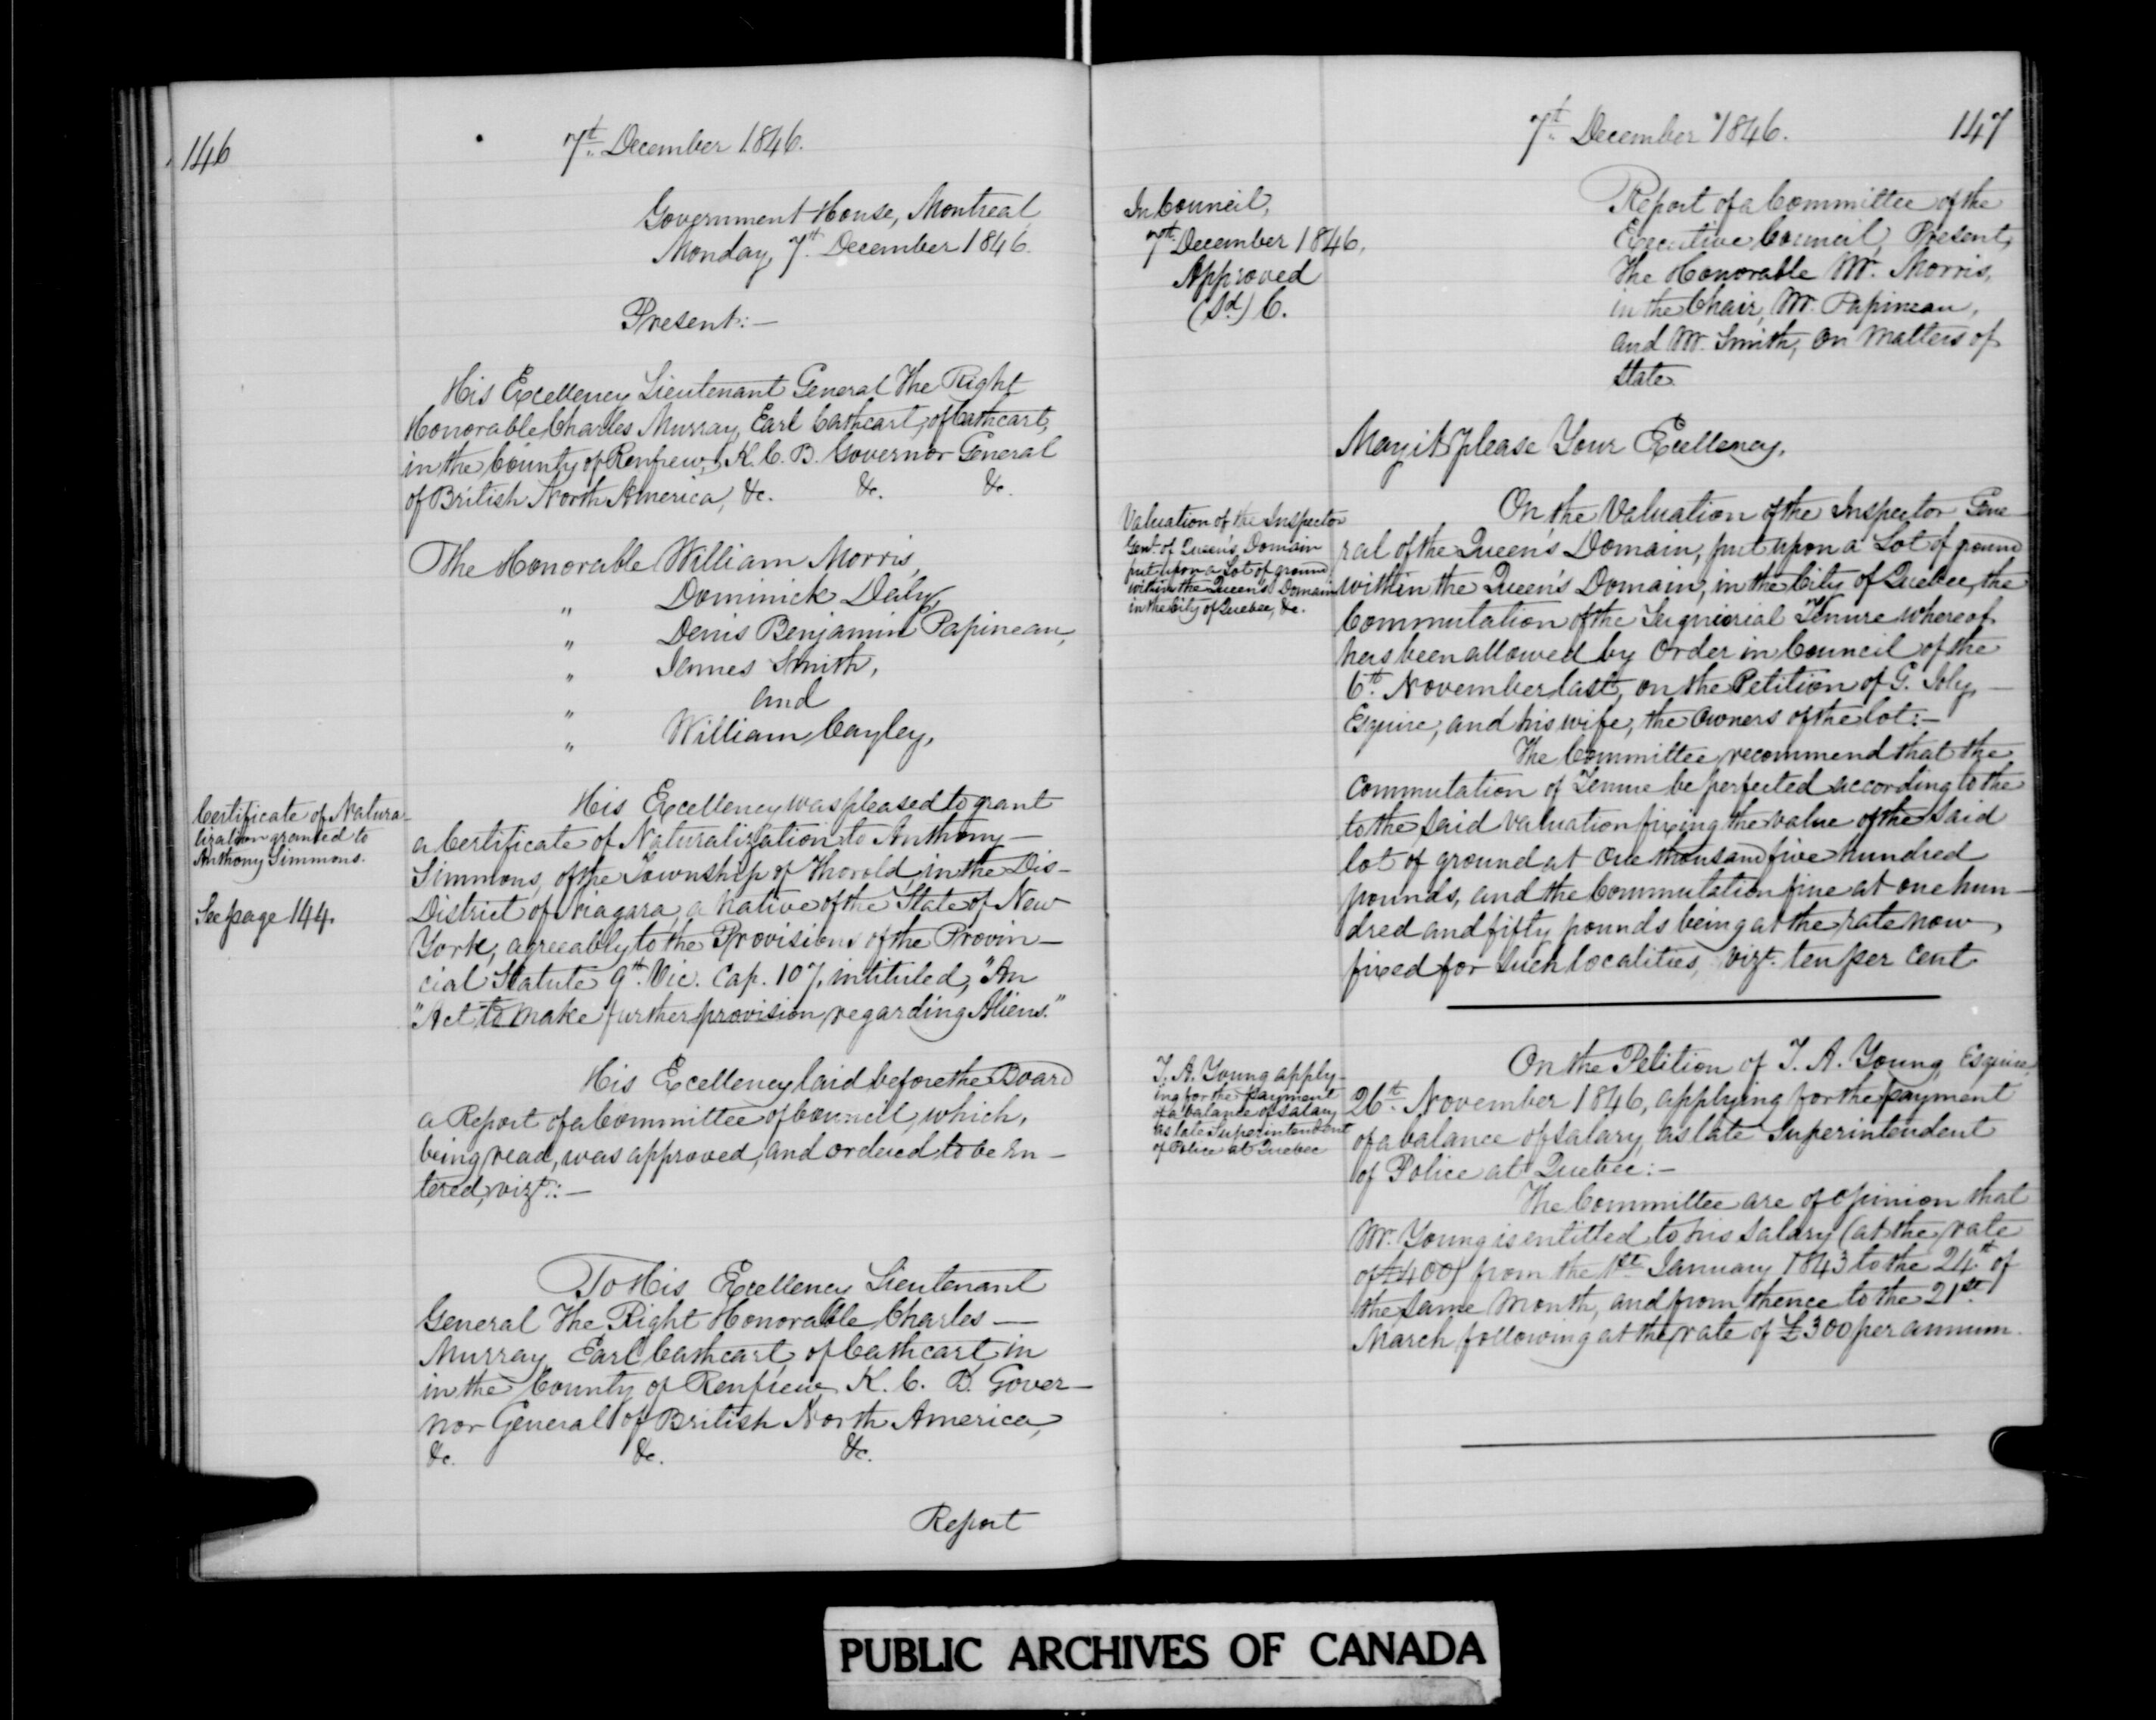 146
7th December 1846.
Government House, Montreal,
Monday, 7th December 1846.
Present:—
His Excellency Lieutenant General The Right
Honorable Charles Murray, Earl Cathcart, of Cathcart,
in the County of Renfrew, K. C. B. Governor General
of British North America, &c. &c. &c.
The Honorable William Morris,
" Dominick Daly,
" Denis Benjamin Papineau,
" James Smith,
" and
" William Cayley,
Certificate of Natura-
lization granted to
Anthony Simmons.
See page 144.
His Excellency was pleased to grant
a Certificate of Naturalization to Anthony —
Simmons, of the Township of Thorold, in the Dis-
District of Niagara, a native of the State of New
York, agreeably to the Provisions of the Provin-
cial Statute 9th Vic. Cap. 107, intituled, "An
"Act to make further provision regarding Aliens."
His Excellency laid before the Board
a Report of a Committee of Council, which,
being read, was approved, and ordered to be En-
tered, vizt:—
To His Excellency Lieutenant
General The Right Honorable Charles —
Murray, Earl Cathcart, of Cathcart, in
in the County of Renfrew, K. C. B. Gover-
nor General of British North America,
&c. &c. &c.
Report
7th December 1846. 147
In Council,
7th December 1846,
Approved
(Sd) C.
Report of a Committee of the
Executive Council, Present,
The Honorable Mr. Morris,
in the Chair, Mr. Papineau,
and Mr. Smith, on Matters of
State.
May it please Your Excellency,
Valuation of the Inspector
Genl. of Queen's Domain
put upon a Lot of ground
within the Queen's Domain
in the City of Quebec, &c.
On the Valuation of the Inspector Gene-
ral of the Queen's Domain, put upon a Lot of ground
within the Queen's Domain, in the City of Quebec, the
Commutation of the Seigniorial Tenure whereof
has been allowed by Order in Council of the
6th November last, on the Petition of G. Joly, —
Esquire, and his wife, the Owners of the lot:—
The Committee recommend that the
Commutation of Tenure be perfected according to the
to the said valuation fixing the value of the said
lot of ground at One thousand five hundred
pounds, and the Commutation fine at one hun-
dred and fifty pounds being at the rate now
fixed for such localities, vizt. ten per Cent
T. A. Young apply-
ing for the payment
of a balance of salary
as late Superintendent
of Police at Quebec
On the Petition of T. A. Young, Esquire,
26th November 1846, applying for the payment
of a balance of salary, as late Superintendent
of Police at Quebec:—
The Committee are of opinion that
Mr. Young is entitled to his salary (at the rate
of £400) from the 1st January 1843 to the 24th of
the same month, and from thence to the 21st
March following at the rate of £300 per annum.
PUBLIC ARCHIVES OF CANADA